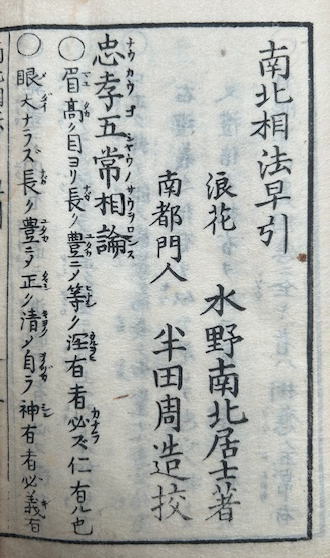 南北相法早引
浪花 水野南北居士著
南都門人 半田周造挍
忠孝五常相論
〇眉高ク目ヨリ長ク豊ニ〆等ク 有者必ズ仁有ル也
〇眼大ナラズ長ク豊ニ〆正ク清ク自ラ神有者必義有